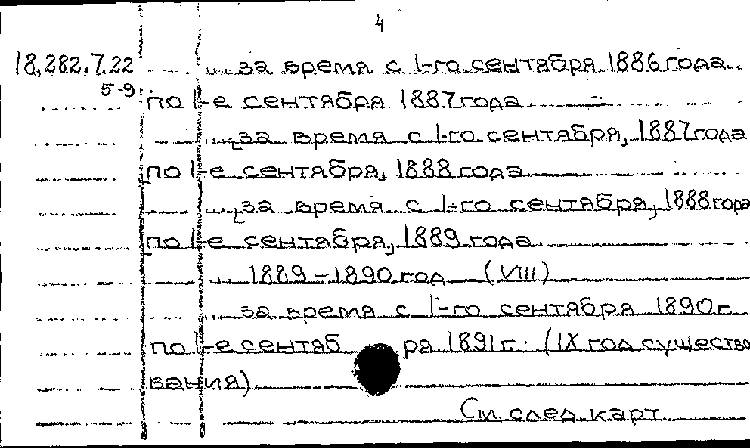 4
18.282.7.22 ... за время с 1-го сентября 1886 года
5-9 по 1-е сентября 1887 года
... за время с 1-го сентября, 1887 года
по 1-е сентября, 1888 года
... за время с 1-го сентября, 1888 года
по 1-е сентября, 1889 года
... 1889-1890 год (VIII)
... за время с 1-го сентября 1890 г.
по 1-е сентября 1891 г. (IX год существо
вания)
См. след. карт.